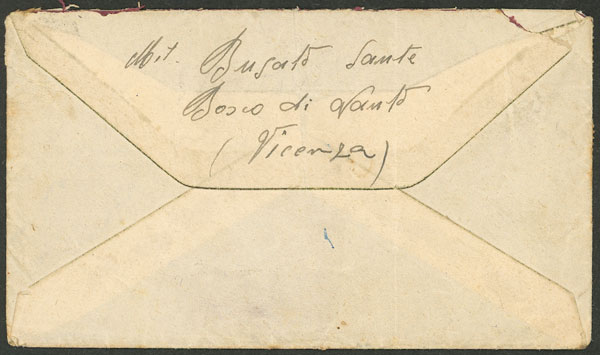 Mit. Busato Sante
Bosco di Nanto
(Vicenza)